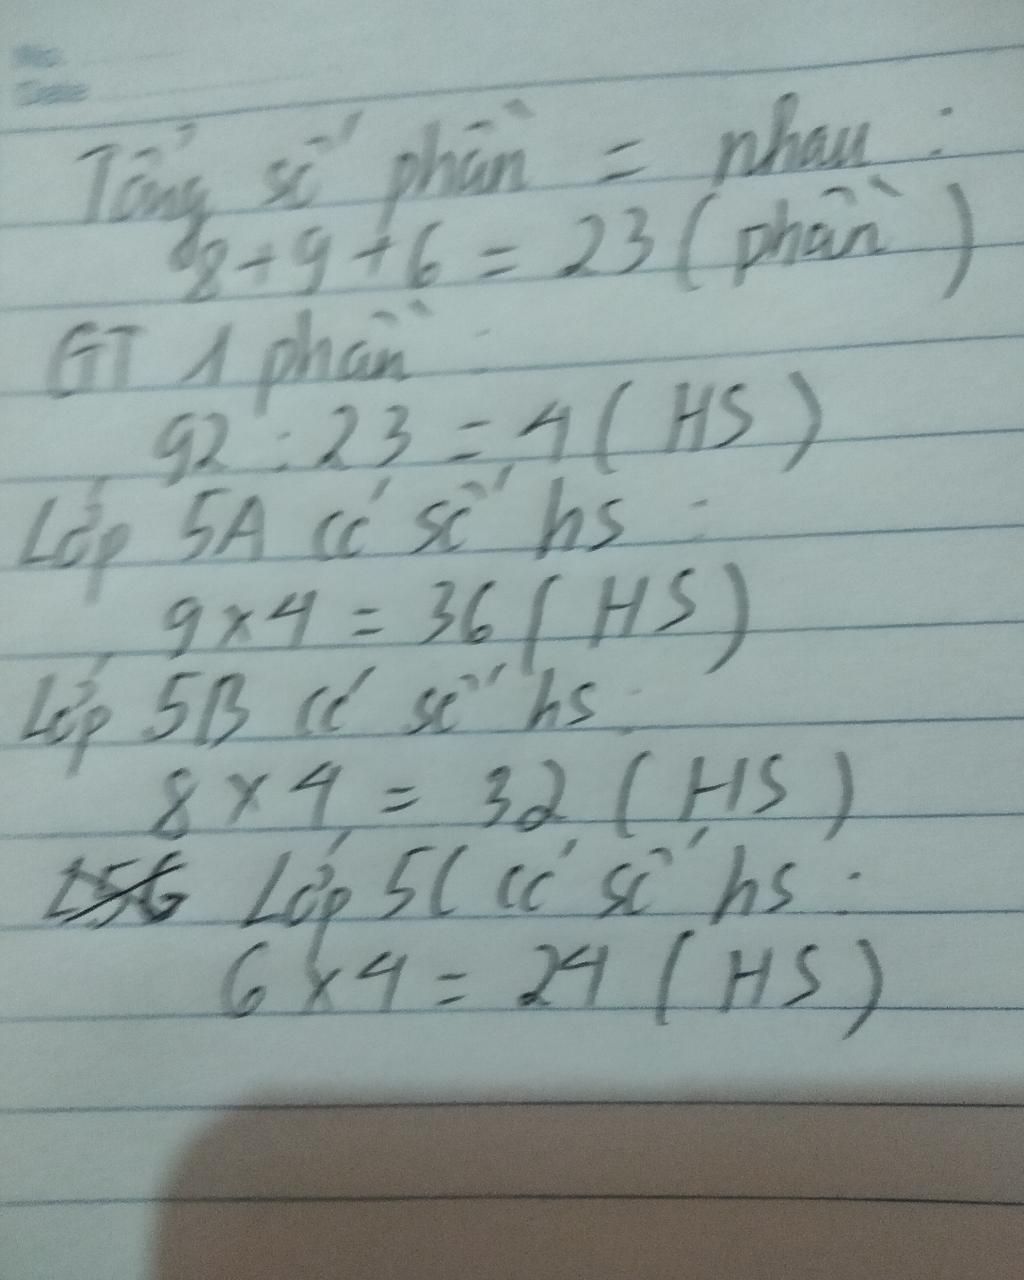 No.
Date
Tổng số phần = nhau :
8 + 9 + 6 = 23 ( phần )
GT 1 phần :
92 : 23 = 4 ( HS )
Lớp 5A có số hs :
9 x 4 = 36 ( HS )
Lớp 5B có số hs :
8 x 4 = 32 ( HS )
Lớp 5C có số hs :
6 x 4 = 24 ( HS )